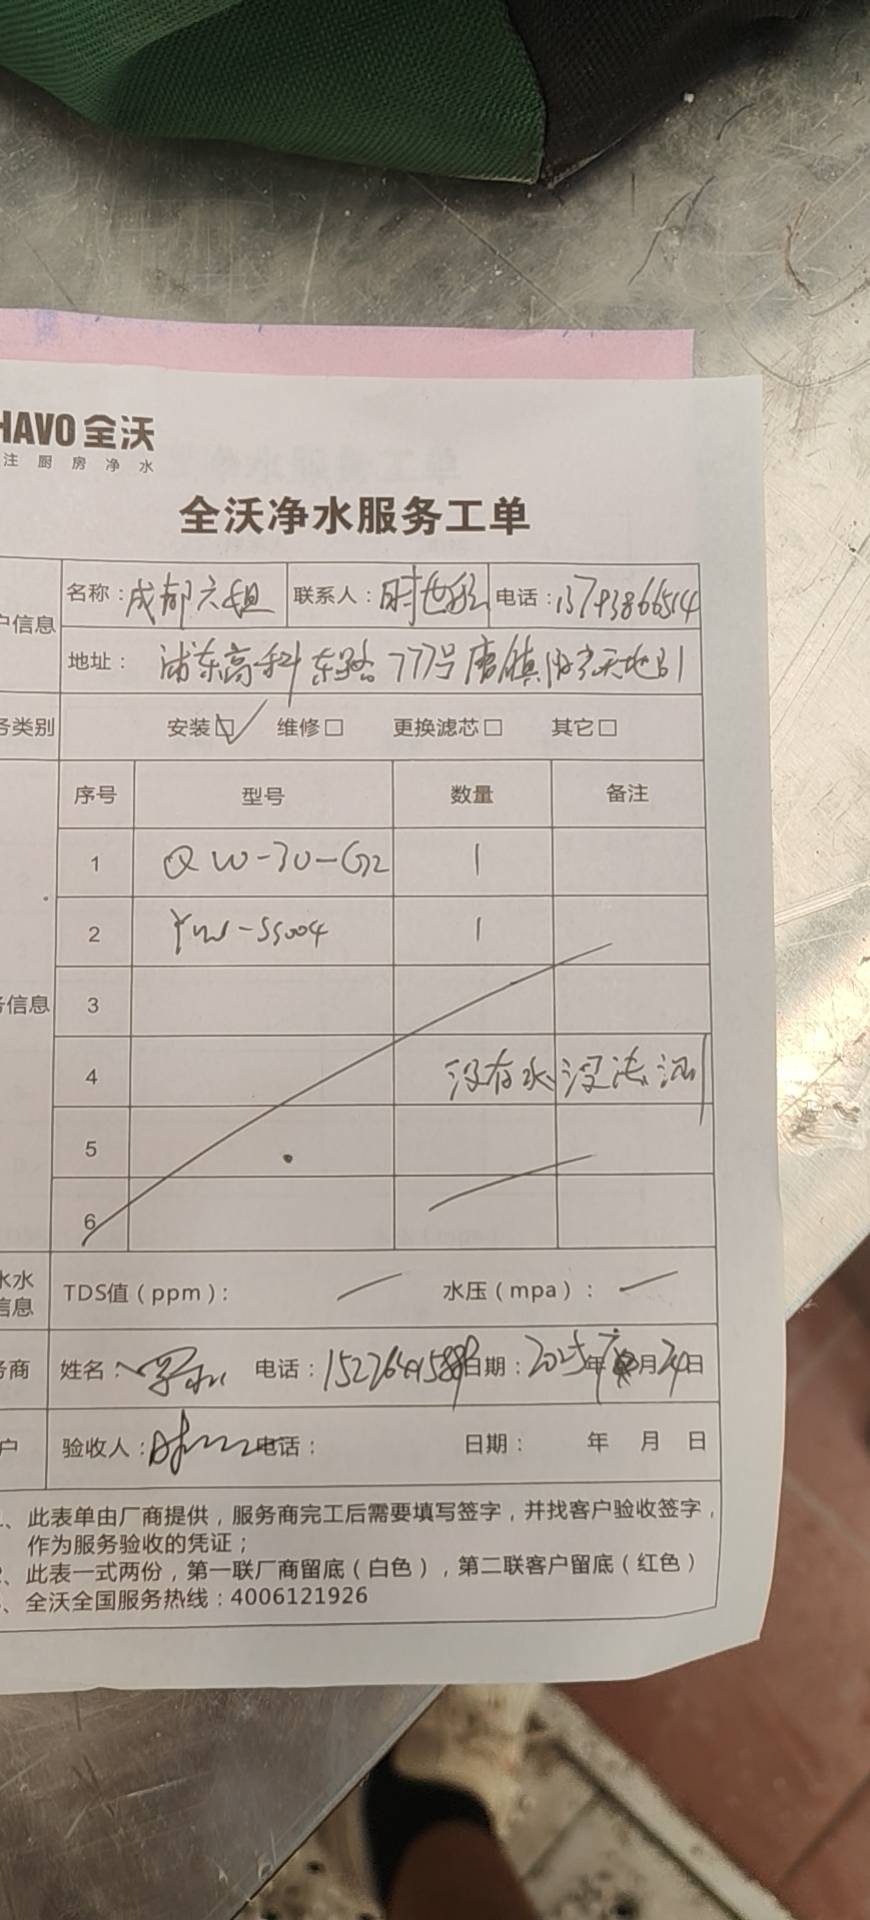 HAVO 全沃
注厨房净水
全沃净水服务工单
户信息
名称：成都六姐 联系人：时 电话：13793866514
地址：浦东高科东路777号唐镇阳光天地B1
务类别 安装☑ 维修□ 更换滤芯□ 其它□
序号 型号 数量 备注
1 QW-30-G2 1
2 YW-SS004 1
务信息 3
4 没有水没法测
5
6
水水信息 TDS值（ppm）： 水压（mpa）：
务商 姓名： 电话： 日期：2025年7月24日
户 验收人：时 电话： 日期： 年 月 日
1、此表单由厂商提供，服务商完工后需要填写签字，并找客户验收签字，
作为服务验收的凭证；
2、此表一式两份，第一联厂商留底（白色），第二联客户留底（红色）
、全沃全国服务热线：4006121926